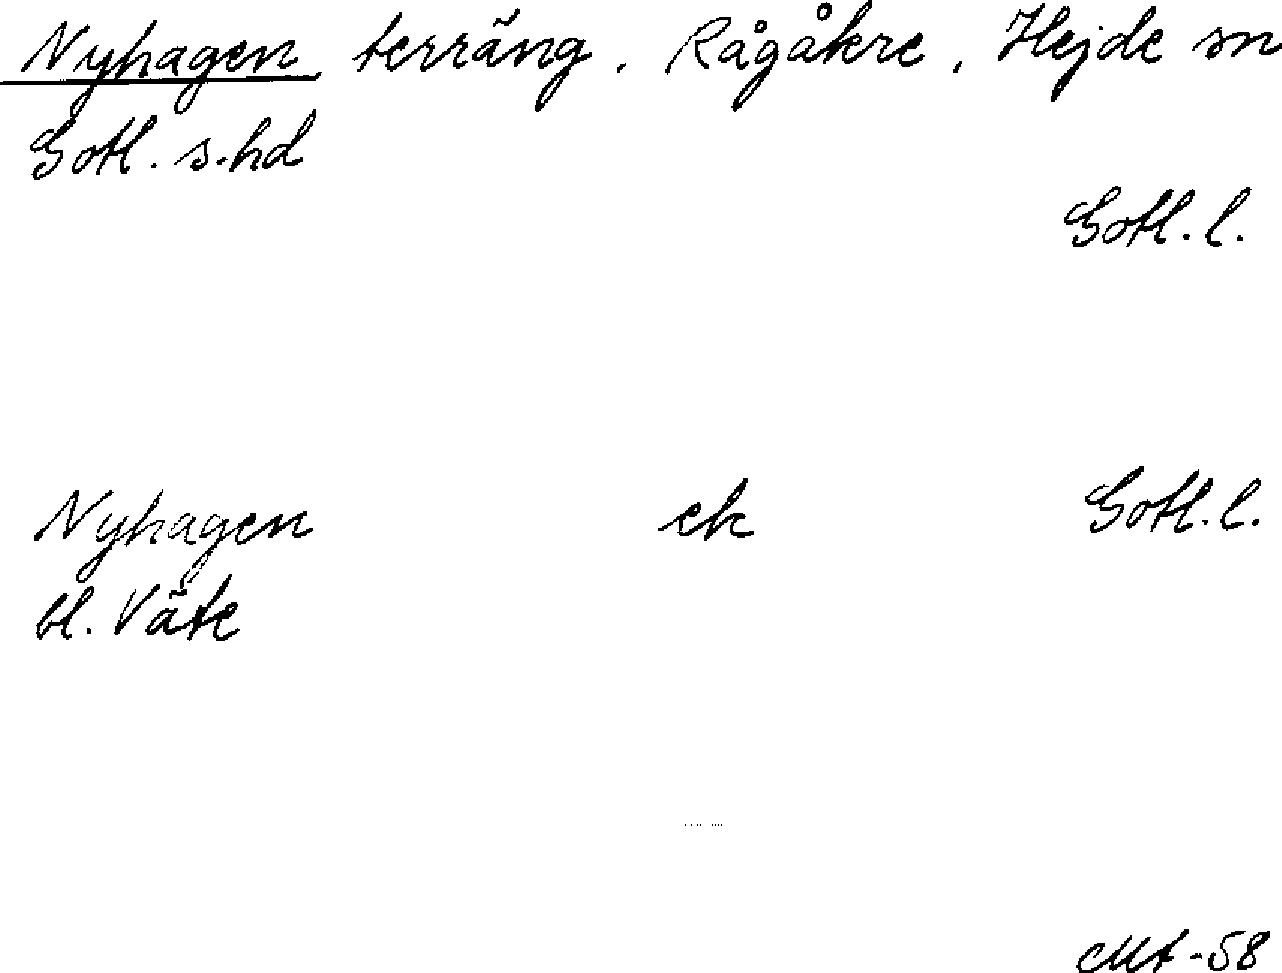 Nyhagen, terräng, Rågåkre, Hejde sn
Gotl. s. hd
Gotl. l.
Nyhagen ek Gotl. l.
bl. Väte
Mt-58